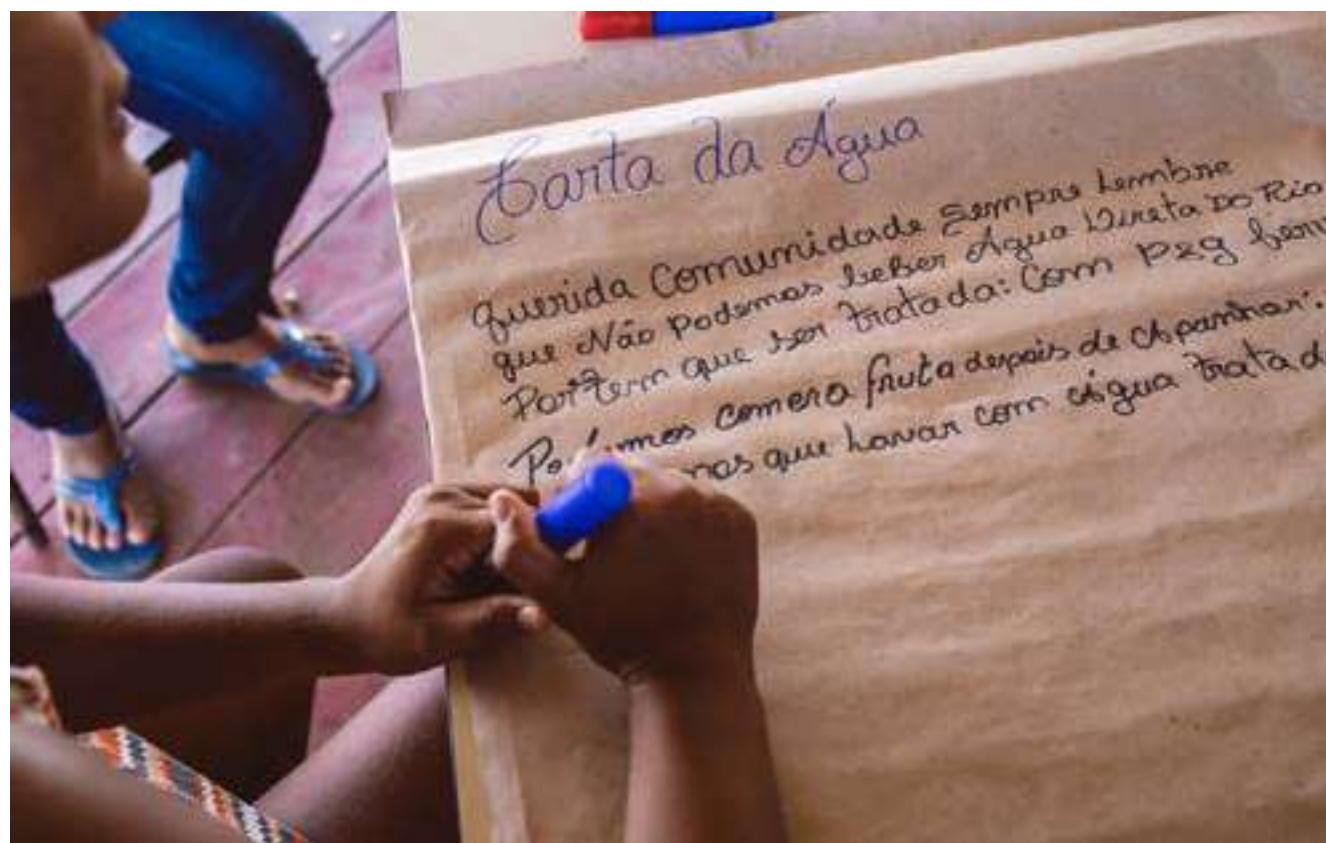 Carta da Água
querida Comunidade Sempre Lembre
que Não Podemos beber Água Direta Do Rio
Por tem que ser tratada: Com P2g
comer a fruta depois de Apanhar:
que Lavar com água